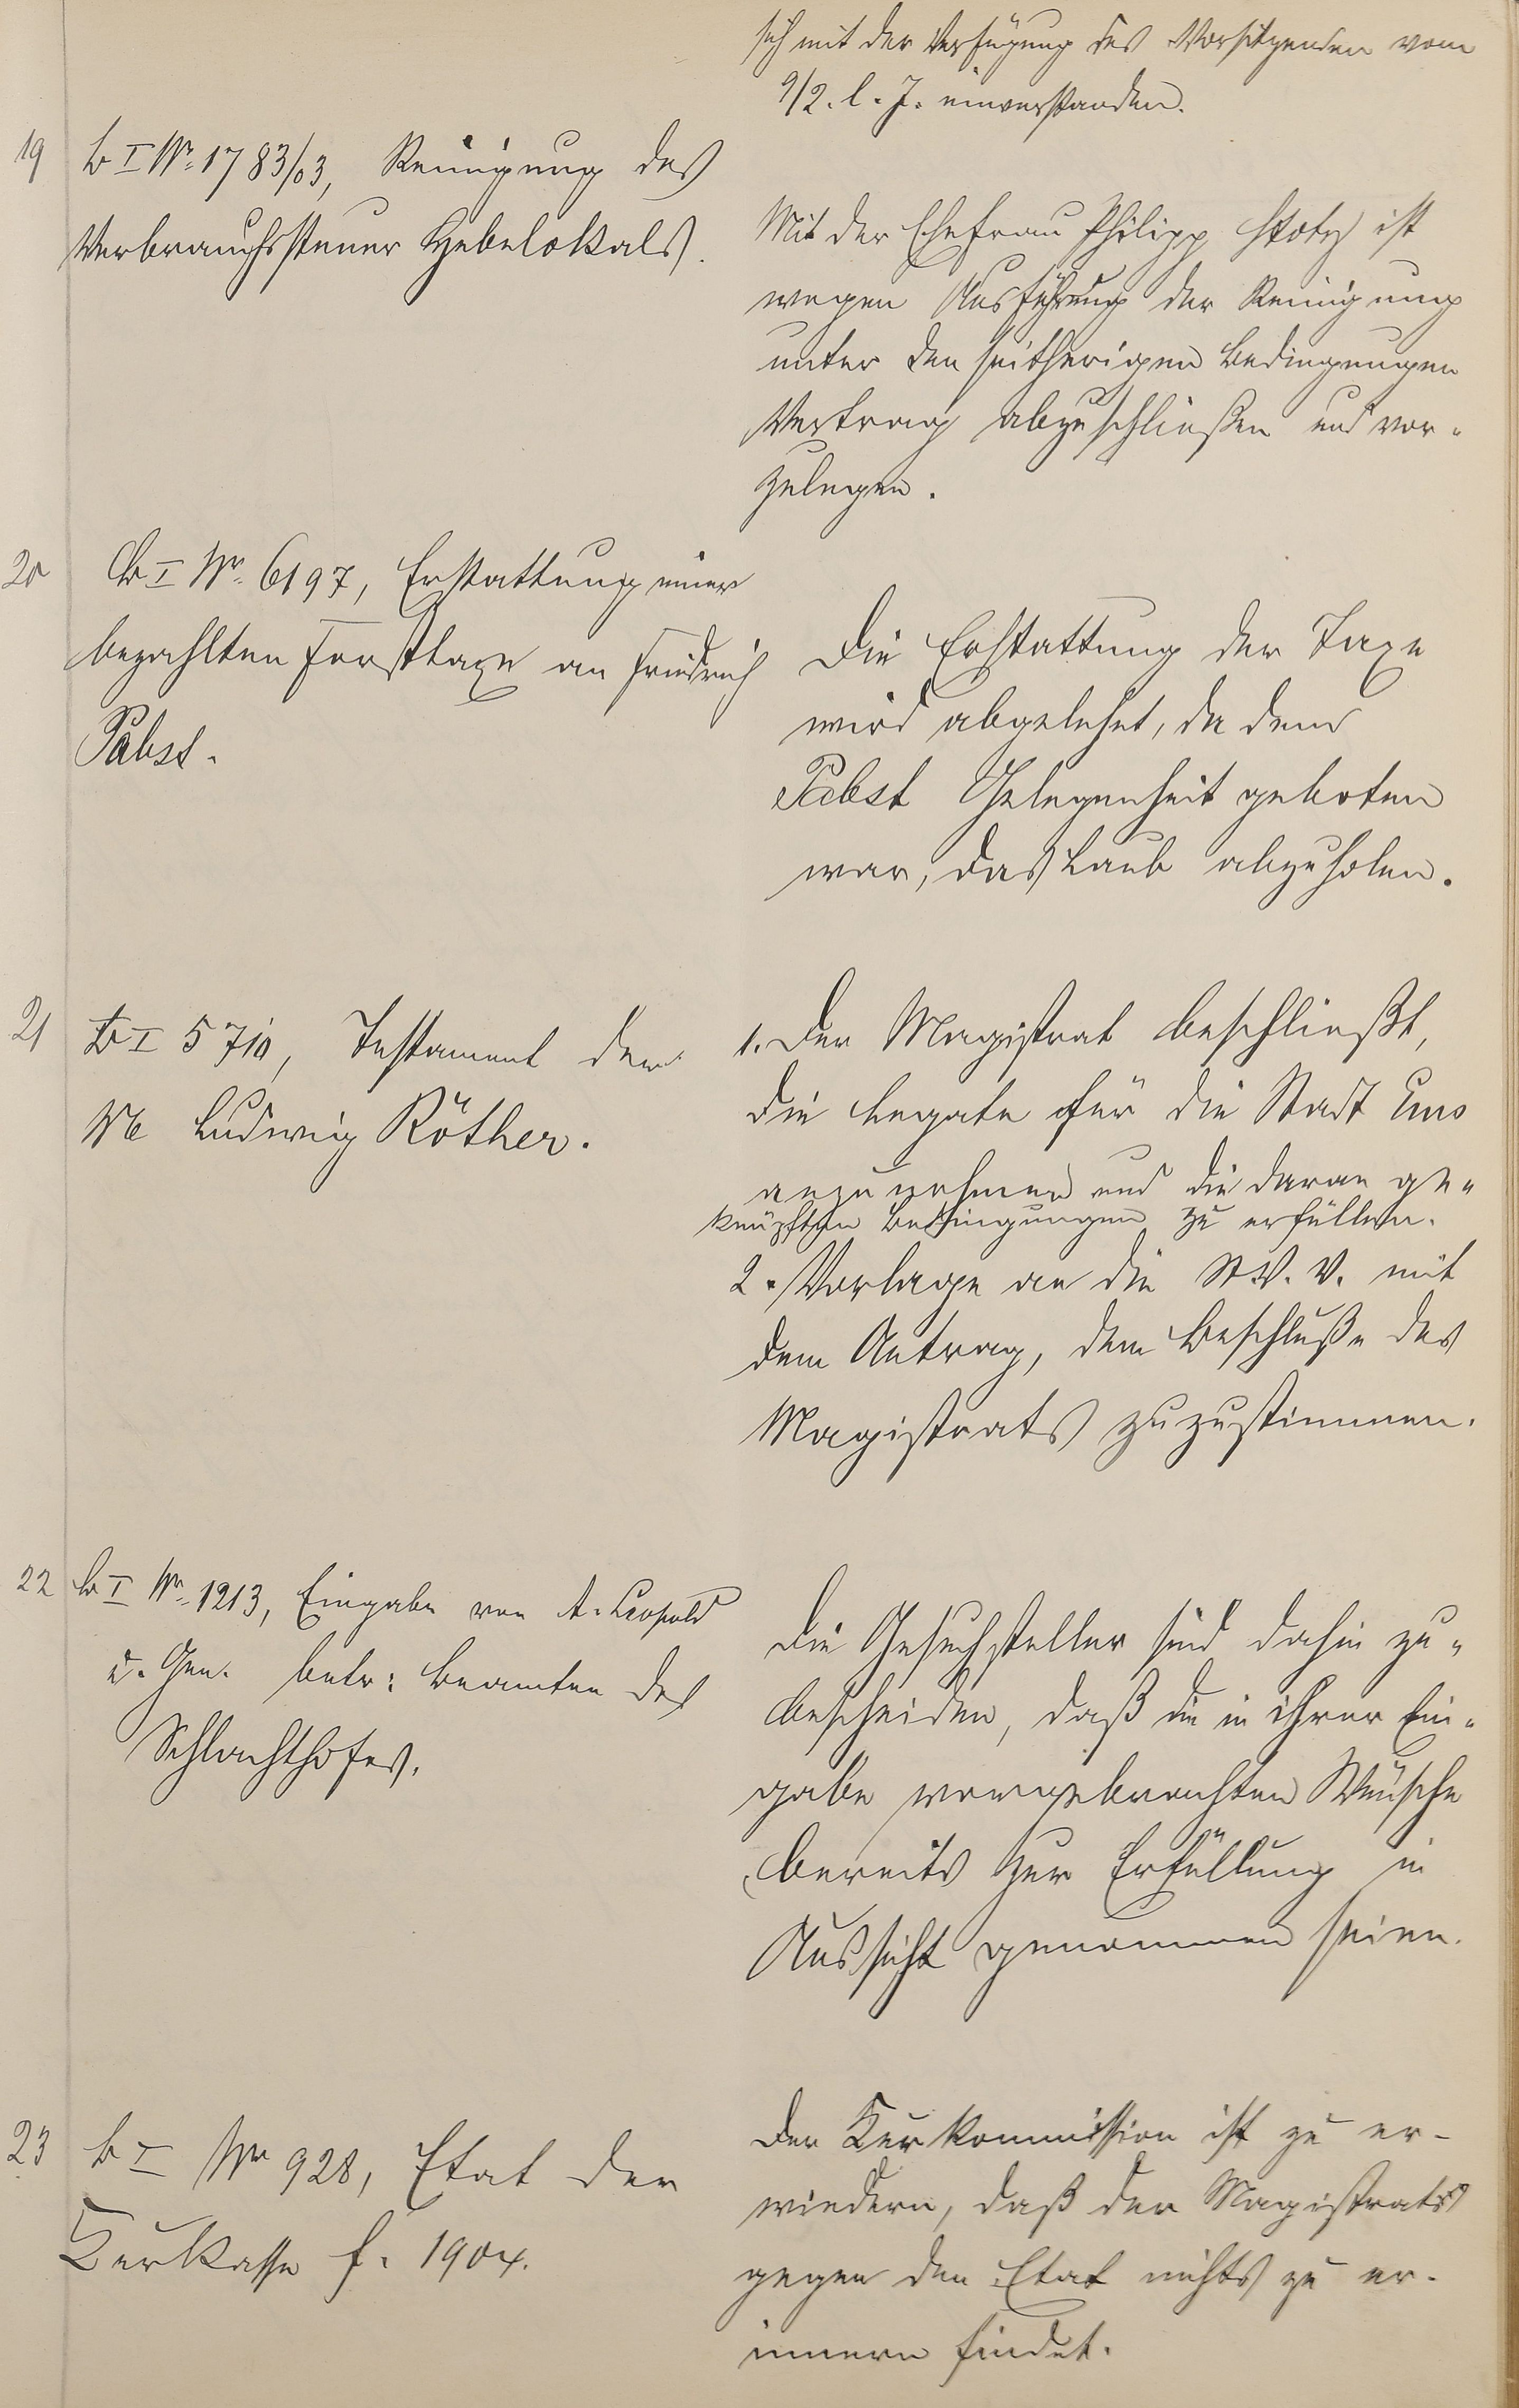 sich mit der Verfügung des Vorsitzenden vom
9/2. l. J. einverstanden.
19
b I Nr. 1783/03, Reinigung des
Verbrauchssteuer Hebelokals.
Mit der Ehefrau Philipp Stotz ist
wegen Ausführung der Reinigung
unter den seitherigen Bedingungen
Vertrag abzuschließen und vor-
zulegen.
20
b I Nr. 6197, Erstattung einer
bezahlten Forsttaxe an Friedrich
Pabst.
Die Erstattung der Taxe
wird abgelehnt, da dem
Pabst Gelegenheit geboten
war, das Laub abzuholen.
21
b I 5710, Testament der
Ludwig Röther.
1. Der Magistrat beschließt,
die Legate für die Stadt Ems
anzunehmen und die daran ge-
knüpften Bedingungen zu erfüllen.
2. Vorlage an die St. V. V. mit
dem Antrag, dem Beschluße des
Magistrats zuzustimmen.
22
b I Nr. 1213, Eingabe von A. Leopold
u. Gen. betr: Beamten des
Schlachthofes.
Die Gesuchsteller sind dahin zu-
bescheiden, daß die in ihrer Ein-
gabe vorgebrachten Wünsche
bereits zur Erfüllung in
Aussicht genommen seien.
23
b I Nr 928, Etat der
Kurkasse f. 1904.
Der Kurkommission ist zu er-
wiedern, daß der Magistrats
gegen den Etat nichts zu er-
innern findet.